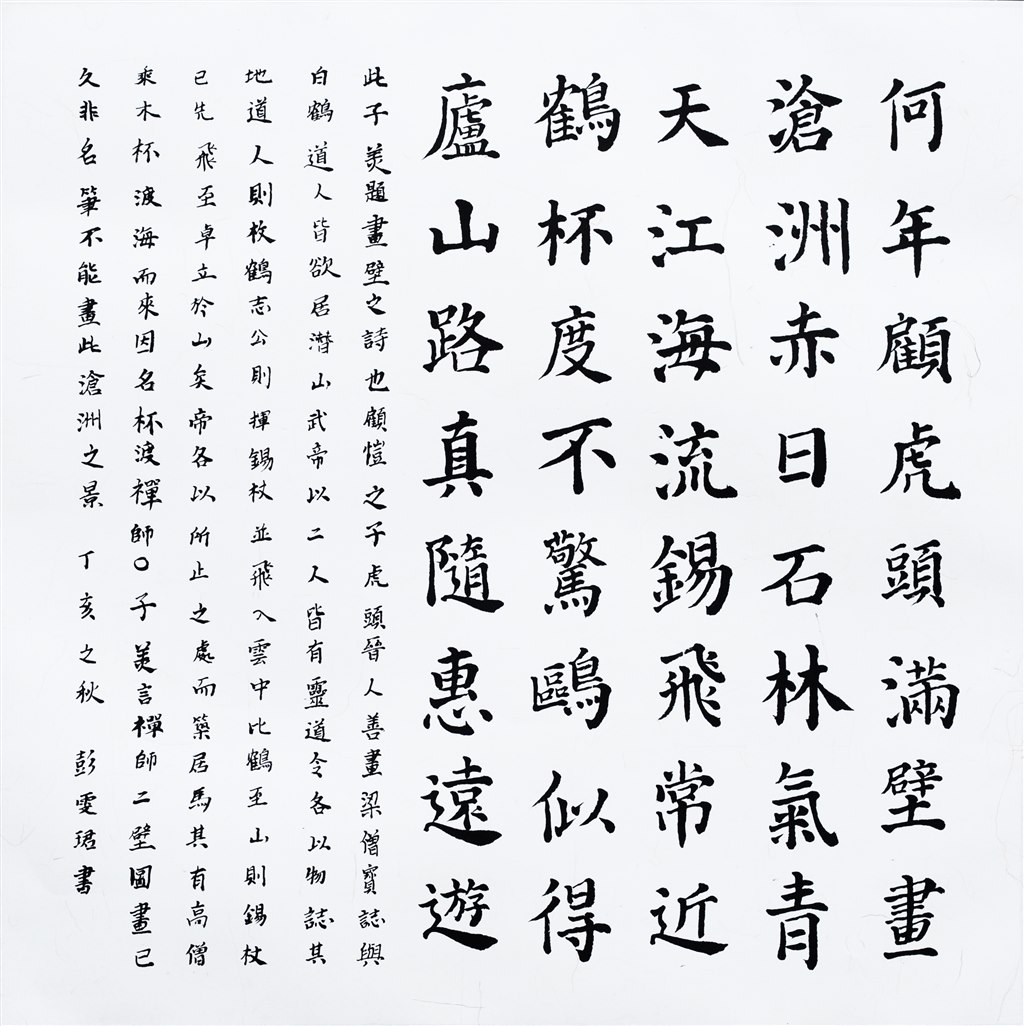 何年顧虎頭滿壁畫
滄洲赤日石林氣青
天江海流錫飛常近
鶴杯度不驚鷗似得
廬山路真隨惠遠遊
此子羙題畫壁之詩也顧愷之子虎頭晉人善畫梁僧寶誌與
白鶴道人皆欲居潛山武帝以二人皆有靈道令各以物誌其
地道人則枚鶴志公則揮錫杖並飛入雲中比鶴至山則錫杖
已先飛至卓立於山矣帝各以所止之處而築居馬其有高僧
乘木杯渡海而來因名杯渡禪師〇子羙言禪師二壁圖畫已
久非名筆不能畫此滄洲之景 丁亥之秋 彭雯珺書